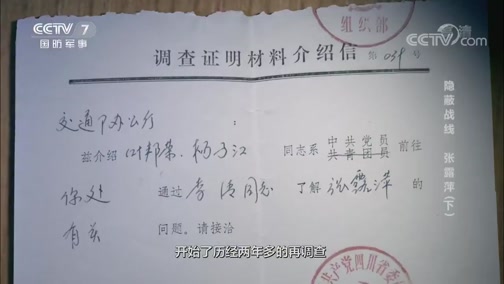 CCTV 7
国防军事
CCTV.com
组织部
调查证明材料介绍信 第 039 号
交通部办公厅 :
兹介绍 叶邦荣、杨子江 同志系 中共党员 前往
共青团员
你处 通过 李清同志 了解 张露萍 的
有关 问题。请接洽
共产党四川省委
隐蔽战线 张露萍(下)
开始了历经两年多的再调查